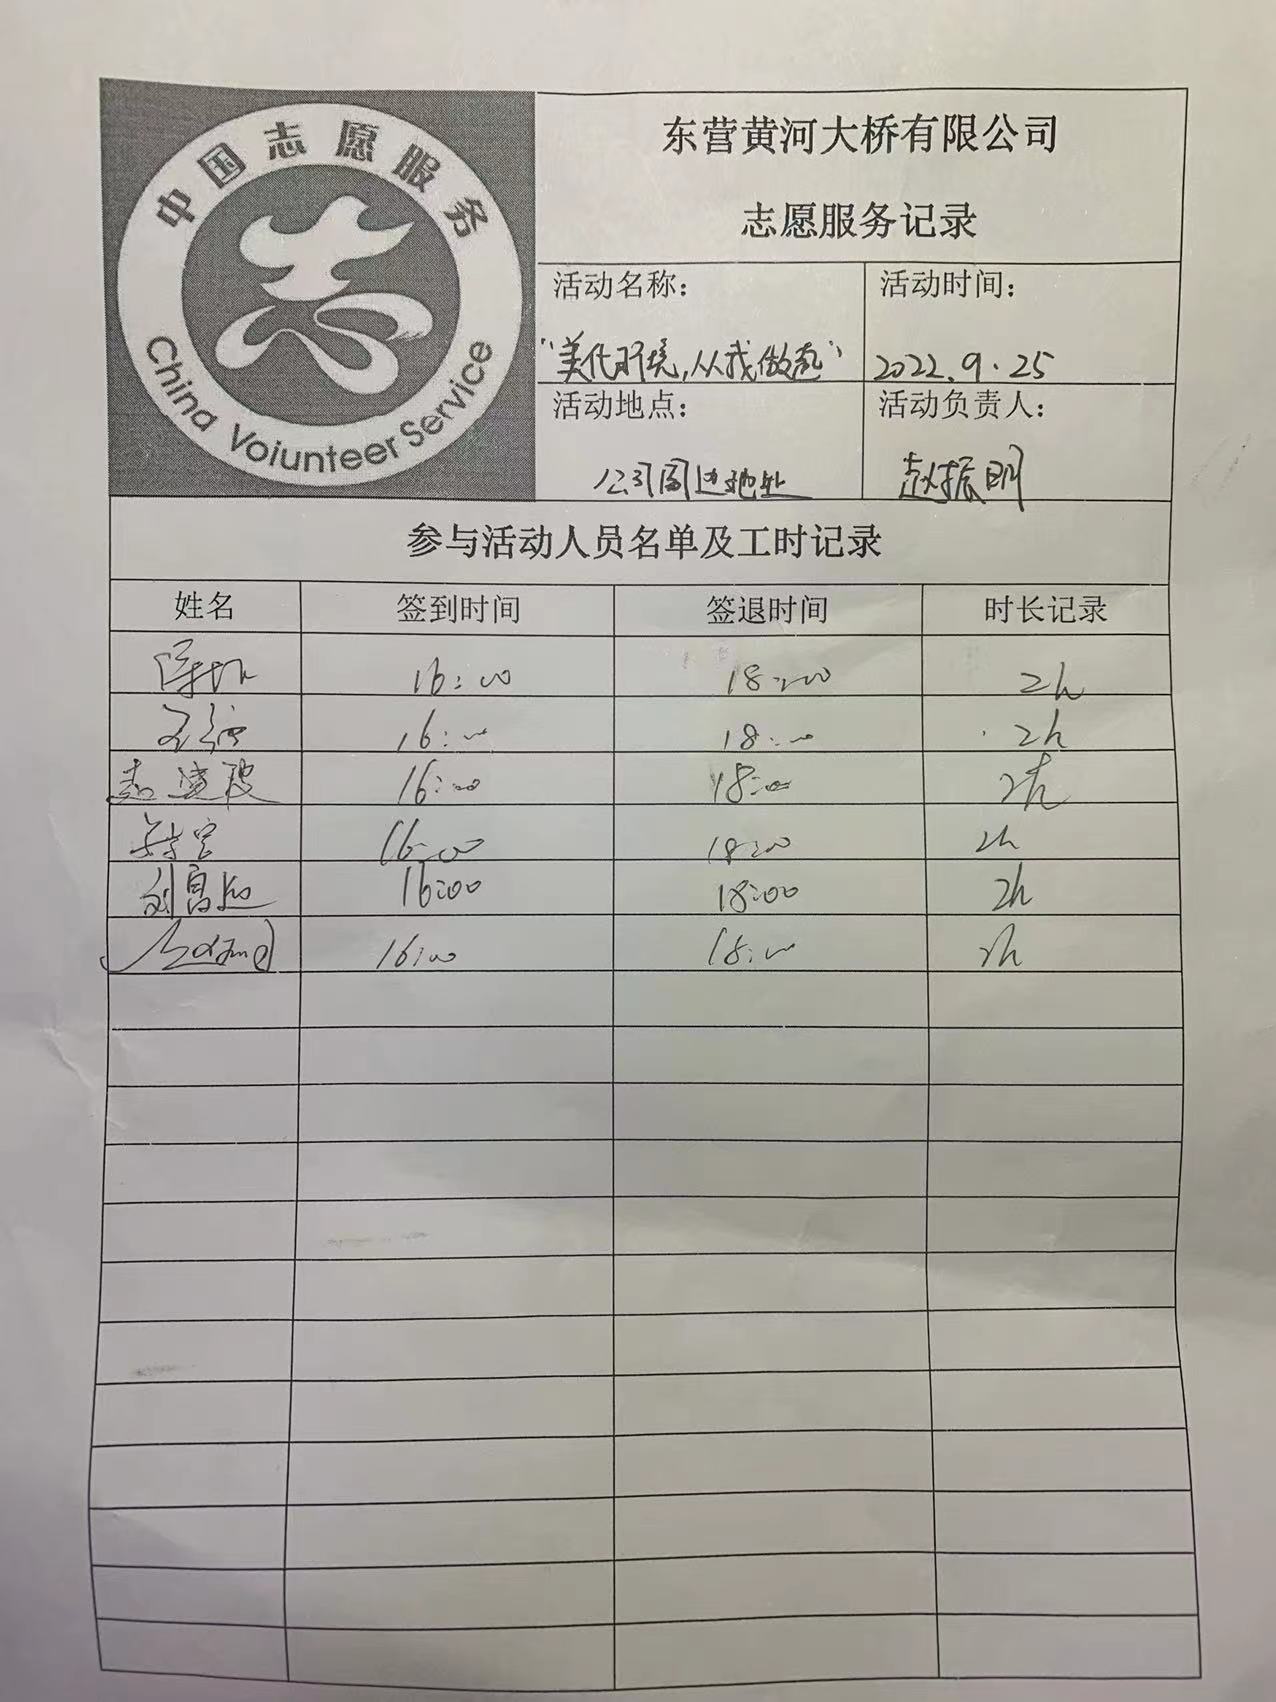 中国志愿服务
China Voiunteer Service
东营黄河大桥有限公司
志愿服务记录
活动名称：
“美化环境,从我做起”
活动时间：
2022.9.25
活动地点：
公司周边地处
活动负责人：
赵振明
参与活动人员名单及工时记录
姓名 签到时间 签退时间 时长记录
16:00 18:00 2h
16:00 18:00 2h
16:00 18:00 2h
16:00 18:00 2h
16:00 18:00 2h
16:00 18:00 2h